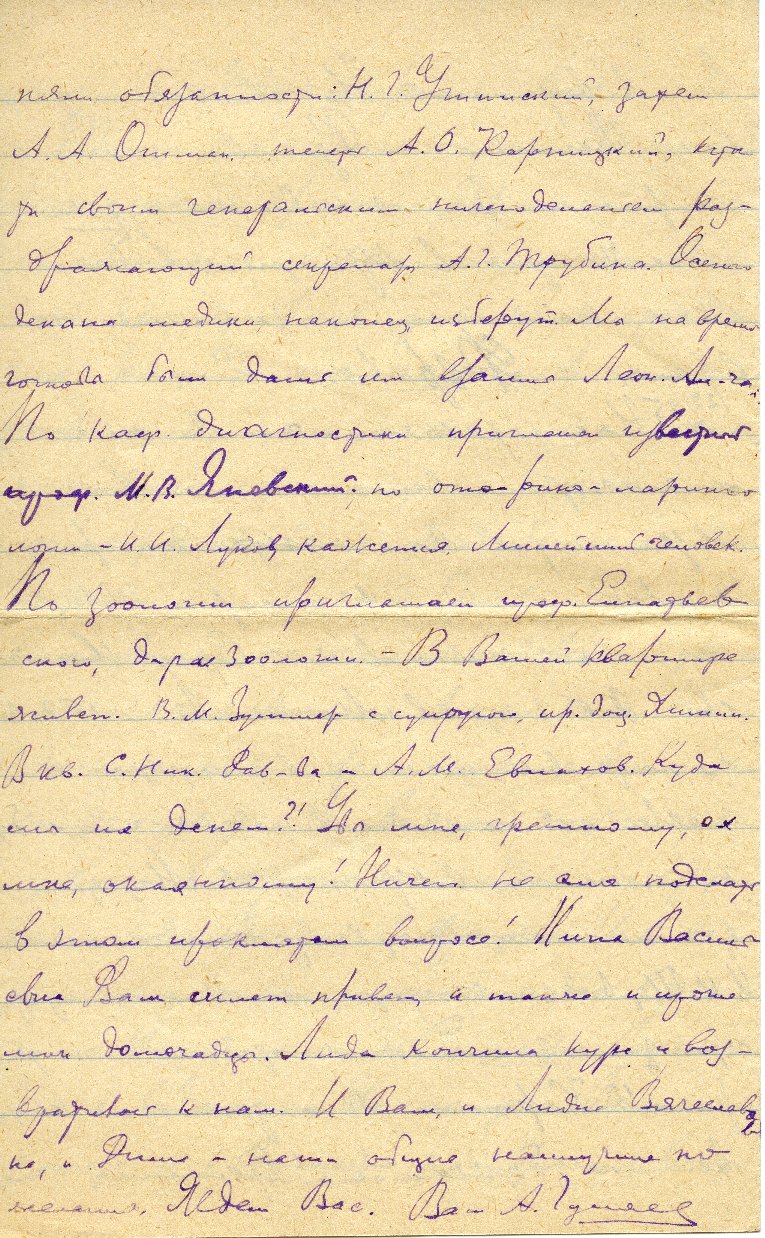 няли обязанности: Н. Г. Ушинский, затем
А. А. Ошман. теперь А. О. Карницкий,
своим генеральским раз-
дражающий секретаря А. Г. Трубина. Осенью
декана медики, наконец, изберут. Мо на время
были даны им Леон. Ал-ча.
По каф. диагностики приглашен известный
проф. М. В. Яновский, по ото-рино-ларинго
логии – И. И. Луков, кажется, милейший человек.
По зоологии приглашаем проф. Елпатьев
ского, зоологии. – В Вашей квартире
живет. В. М. Зуммер с супругою, пр. доц. Химии.
В кв. С. Ник. Дав-ва – А. М. Евлахов. Куда
мы их денем?! Увы мне, грешному, ох
мне, окаянному! Ничем не смог
в этом проклятом вопросе! Нина Василь
евна Вам шлет привет, а также и проче
мои домочадцы. Лида кончила курс и воз-
вратилась к нам. И Вам, и Лидие Вячеславов
не, и Диме – наши общие наилучшие по
желания. Ждем Вас. Ваш А. Гуляев